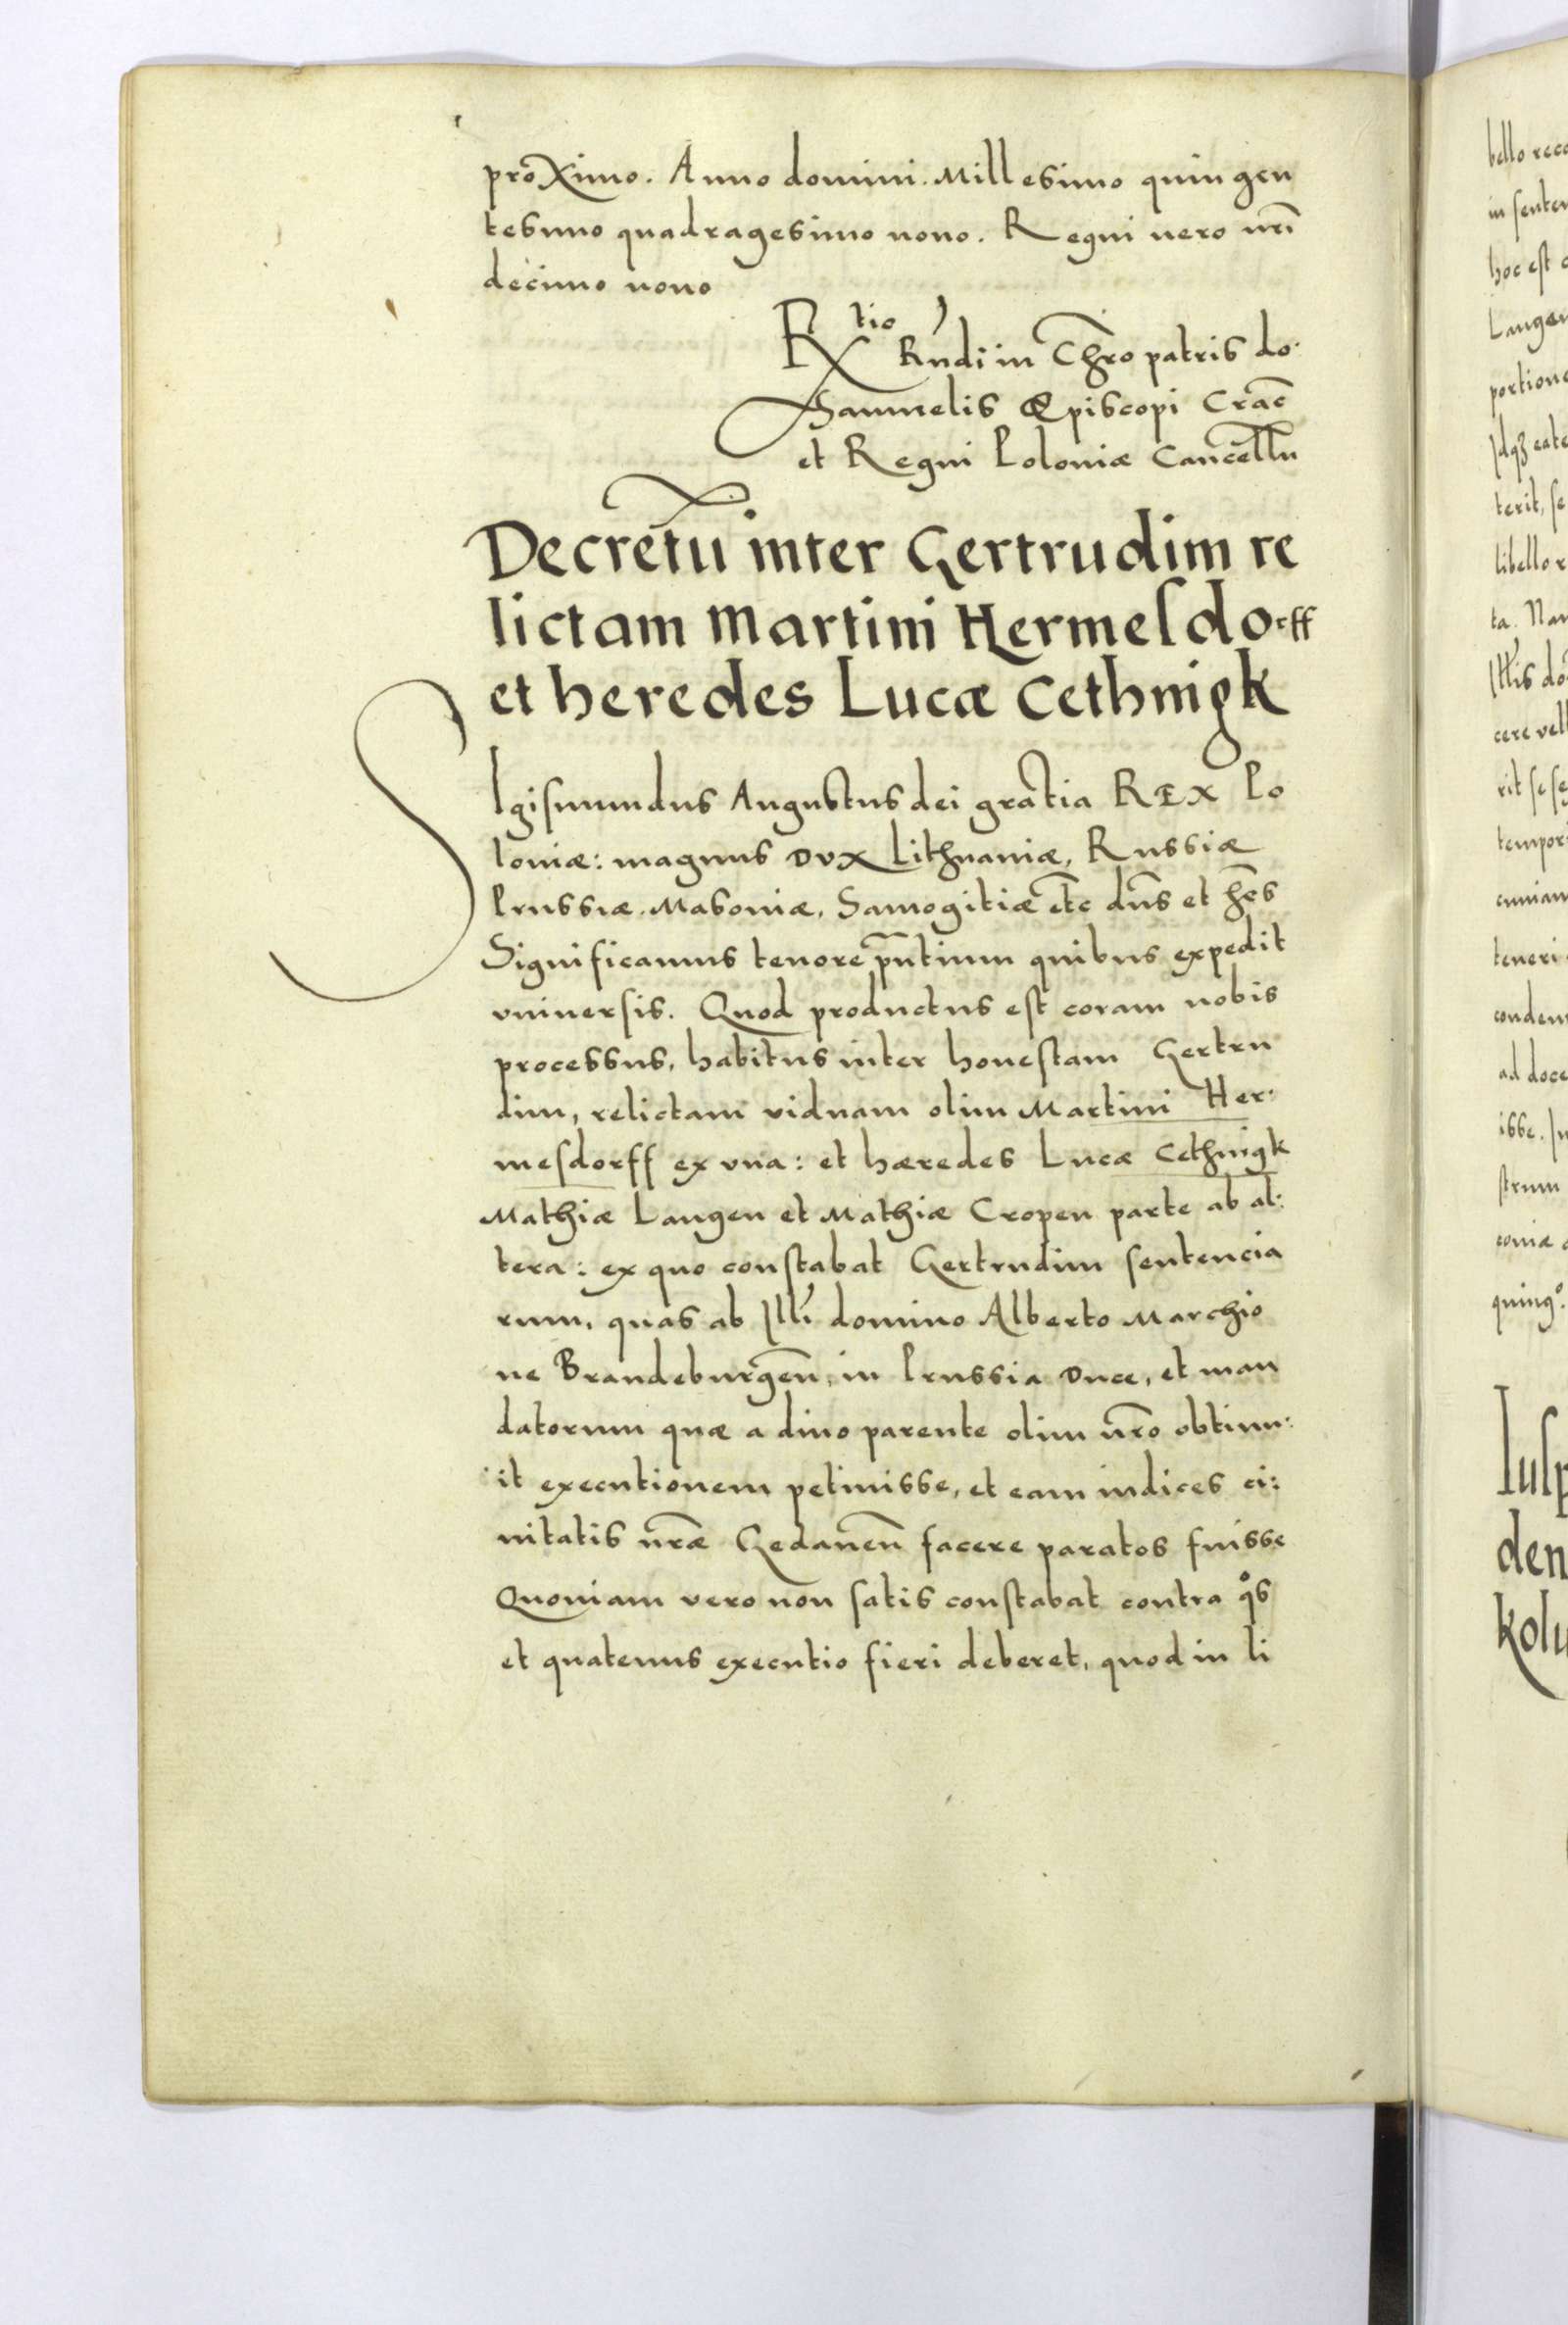 proximo. Anno domini. Millesimo quingen
tesimo quadragesimo nono. Regni vero nrĩ
decimo nono
Rtio Rndi in Chro patris do.
Samuelis Episcopi Crac̄
et Regni Poloniæ Cancellu
Decretū inter Gertrudim re
lictam Martini Hermeſdorff
et heredes Lucæ Cethnigk
SIgiſmundus Augustus dei gratia REX Po
loniæ: magnus DVX Lithuaniæ, Russiæ
Prussiæ. Masoniæ, Samogitiæ etc̄ dns̄ et hēs
Significamus tenore pn̄tium quibus expedit
vniuerſis. Quod productus eſt coram nobis
processus, habitus inter honeſtam Gertru
dim, relictam viduam olim Martini Her:
meſdorff ex vna: et hæredes Lucæ Cethnigk
Mathiæ Langen et Mathiæ Cropen parte ab al:
tera: ex quo conſtabat Gertrudim ſentencia
rum, quas ab Illr̄i domino Alberto Marchio
ne Brandeburgen̄, in Prussia Duce, et man
datorum quæ a diuo parente olim nr̄o obtinu:
it executionem petiuisse, et eam iudices ci:
uitatis nr̄æ Gedanen̄ facere paratos fuisse
Quoniam vero non ſatis conſtabat contra q̊s
et quatenus executio fieri deberet, quod in li
bello rec
in ſenten
hoc eſt
Langen
portione
Idqꝫ eate
terit, ſe
libello
ta. Nam
Illr̄is do
cere vell
rit ſe ſe
tempor
cuniam
teneri
condem
ad doce
isse. In
ſtrum
coniæ
quingo.
Iuſp
den
kolu